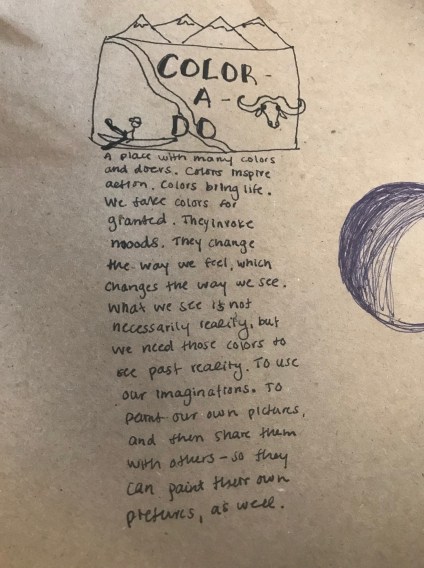 COLOR-
A-
DO
A place with many colors
and doers. Colors inspire
action. Colors bring life.
We take colors for
granted. They invoke
moods. They change
the way we feel, which
changes the way we see.
What we see is not
necessarily reality, but
we need those colors to
see past reality. To use
our imaginations. To
paint our own pictures,
and then share them
with others - so they
can paint their own
pictures, as well.